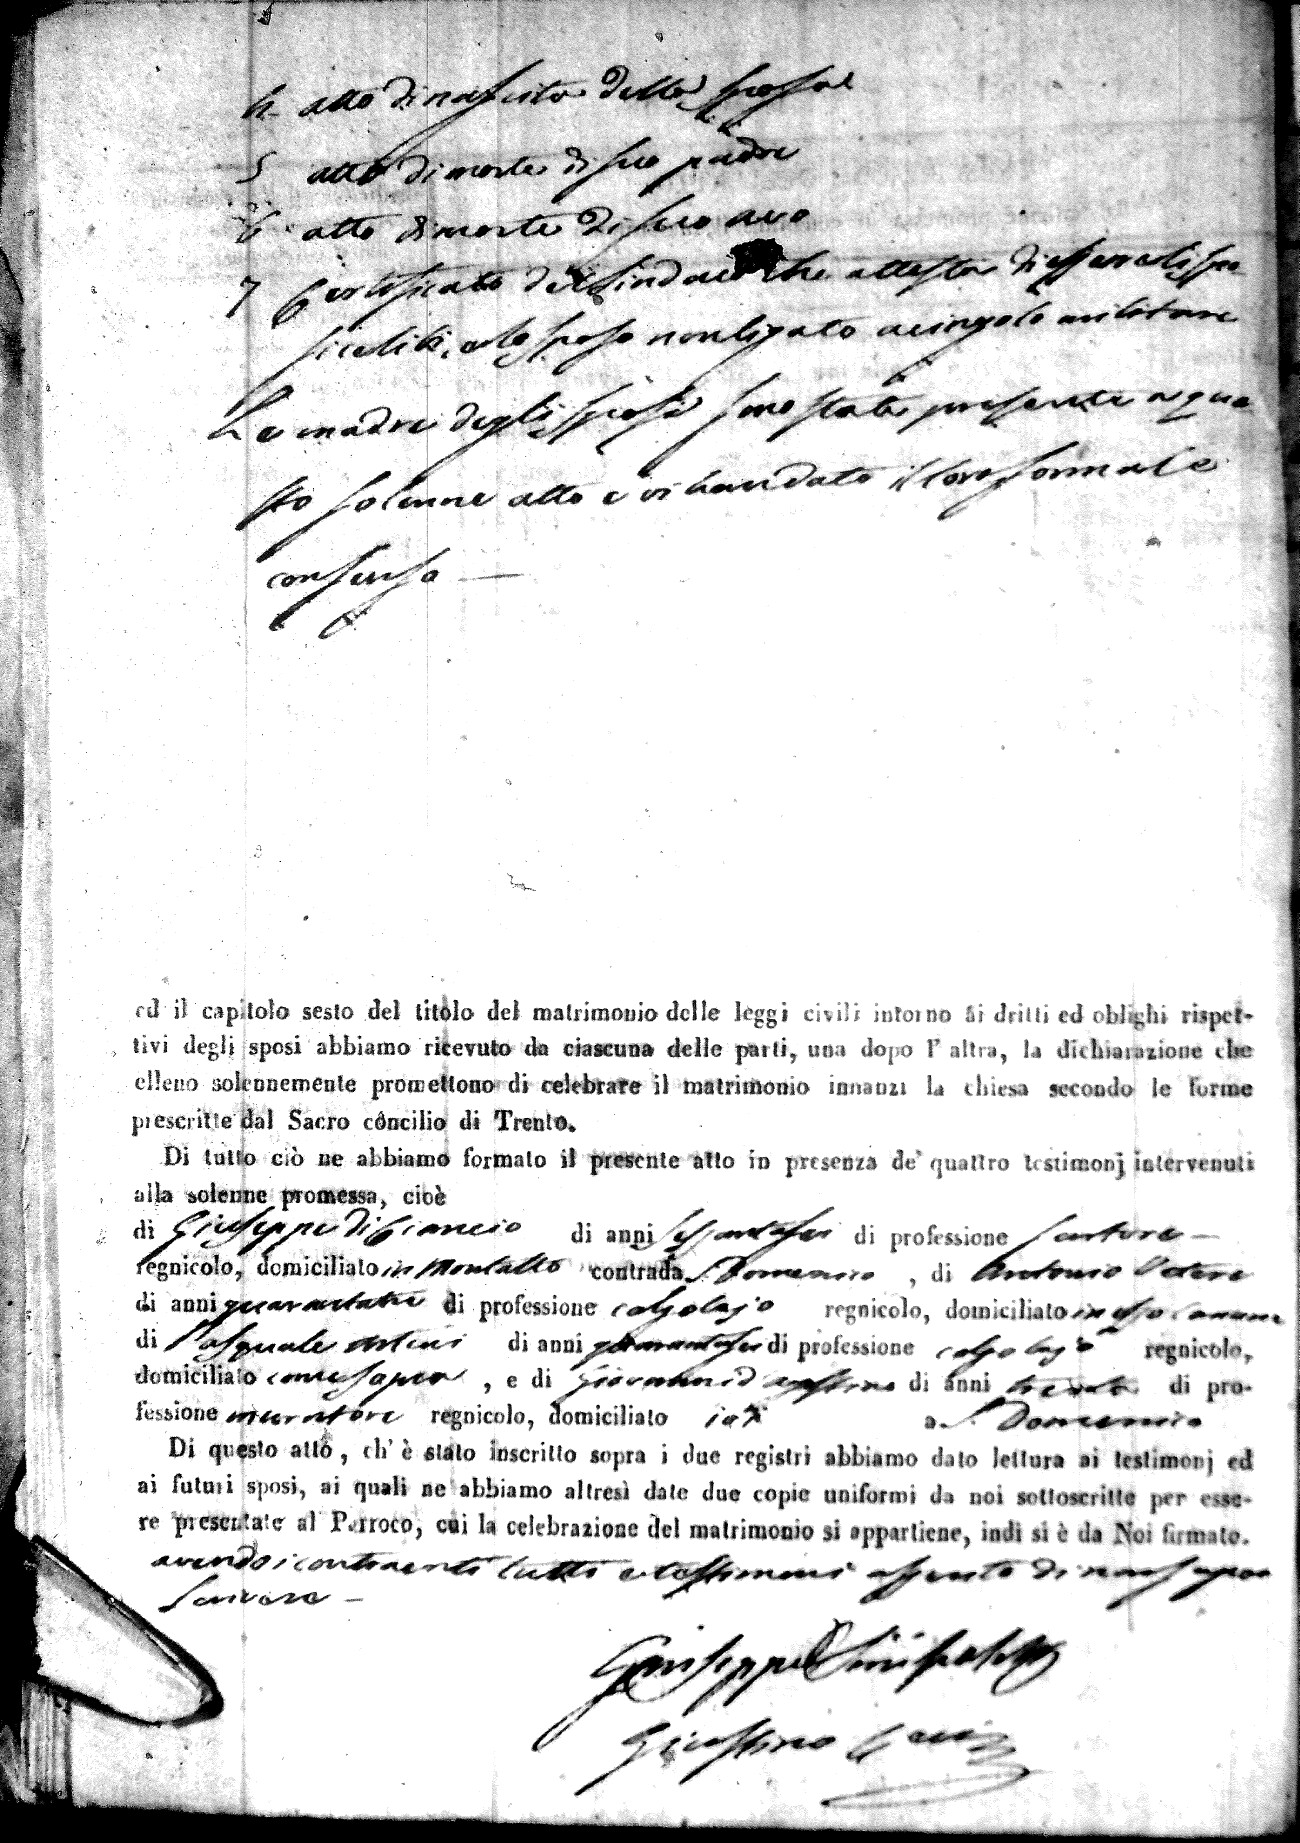 4 atto di nascita della sposa
5 atto di morte di suo padre
6 atto di morte di suo avo
7 Certificato del Sindaco che attesta di essere
lo sposo non ligato a cingolo militare
Le madri degli sposi sono state presenti a que
sto solenne atto e vi han dato il loro formale
consenso —
ed il capitolo sesto del titolo del matrimonio delle leggi civili intorno ai dritti ed oblighi rispet-
tivi degli sposi abbiamo ricevuto da ciascuna delle parti, una dopo l' altra, la dichiarazione che
elleno solennemente promettono di celebrare il matrimonio innanzi la chiesa secondo le forme
prescritte dal Sacro concilio di Trento.
Di tutto ciò ne abbiamo formato il presente atto in presenza de' quattro testimonj intervenuti
alla solenne promessa, cioè
di Giuseppe di Ciancio di anni sessantasei di professione sartore —
regnicolo, domiciliato in Montalto contrada S. Domenico , di Antonio
di anni quarantatre di professione calzolajo regnicolo, domiciliato in esso Comune
di Pasquale di anni di professione calzolajo regnicolo,
domiciliato come sopra , e di Giovanni d'Agostino di anni trenta di pro-
fessione muratore regnicolo, domiciliato ivi a S. Domenico
Di questo atto , ch' è stato inscritto sopra i due registri abbiamo dato lettura ai testimonj ed
ai futuri sposi, ai quali ne abbiamo altresì date due copie uniformi da noi sottoscritte per esse-
re presentate al Parroco, cui la celebrazione del matrimonio si appartiene, indi si è da Noi firmato.
avendo i contraenti tutti e testimoni asserito di non saper
scrivere —
Giuseppe
Giustino